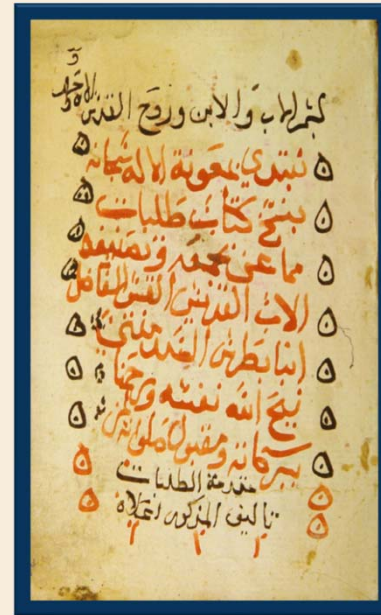 بسم الاب والابن وروح القدس الاه واحد
نبتدي بمعونة الاله سبحانه
بنسخ كتاب طلبات
مما عني بجمعه وتصنيفه
الاب القديس القس الفاضل
انبا بطرس السدمنتي
نيح الله نفسه ورحمنا
ببركاته ومقبول صلواته امين
مقدمة الطلبات
تاليف المذكور اعلاه